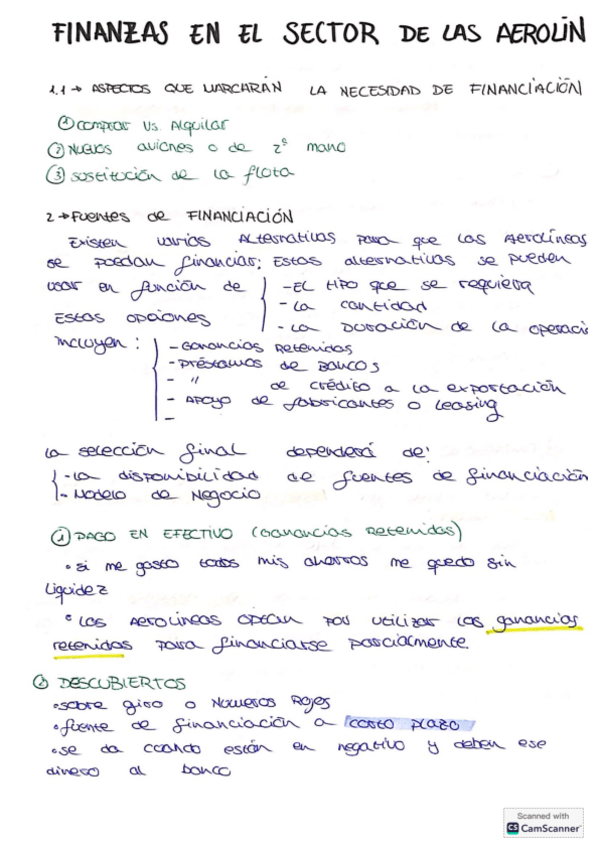 FINANZAS EN EL SECTOR DE LAS AEROLÍN
1.1 → ASPECTOS QUE MARCARÁN LA NECESIDAD DE FINANCIACIÓN
① comprar vs. Alquilar
② Nuevos aviones o de 2ª mano
③ sustitución de la flota
2 → Fuentes de FINANCIACIÓN
Existen varias Alternativas para que las Aerolíneas
se puedan financiar; Estas alternativas se pueden
usar en función de - EL tipo que se requiera
- La cantidad
- La Duración de la operaci
Estas opciones
incluyen: - Ganancias Retenidas
- Préstamos de Bancos
- " de crédito a la exportación
- Apoyo de fabricantes o leasing
-
La selección final dependerá de:
- La disponibilidad de fuentes de financiación
- Modelo de Negocio
① PAGO EN EFECTIVO (Ganancias Retenidas)
• si me gasto todos mis ahorros me quedo sin
liquidez
• Las Aerolíneas optan por utilizar las ganancias
retenidas para financiarse parcialmente.
② DESCUBIERTOS
• sobre giro o Números Rojos
• fuente de financiación a corto plazo
• se da cuando están en negativo y deben ese
dinero al banco
Scanned with
CS CamScanner